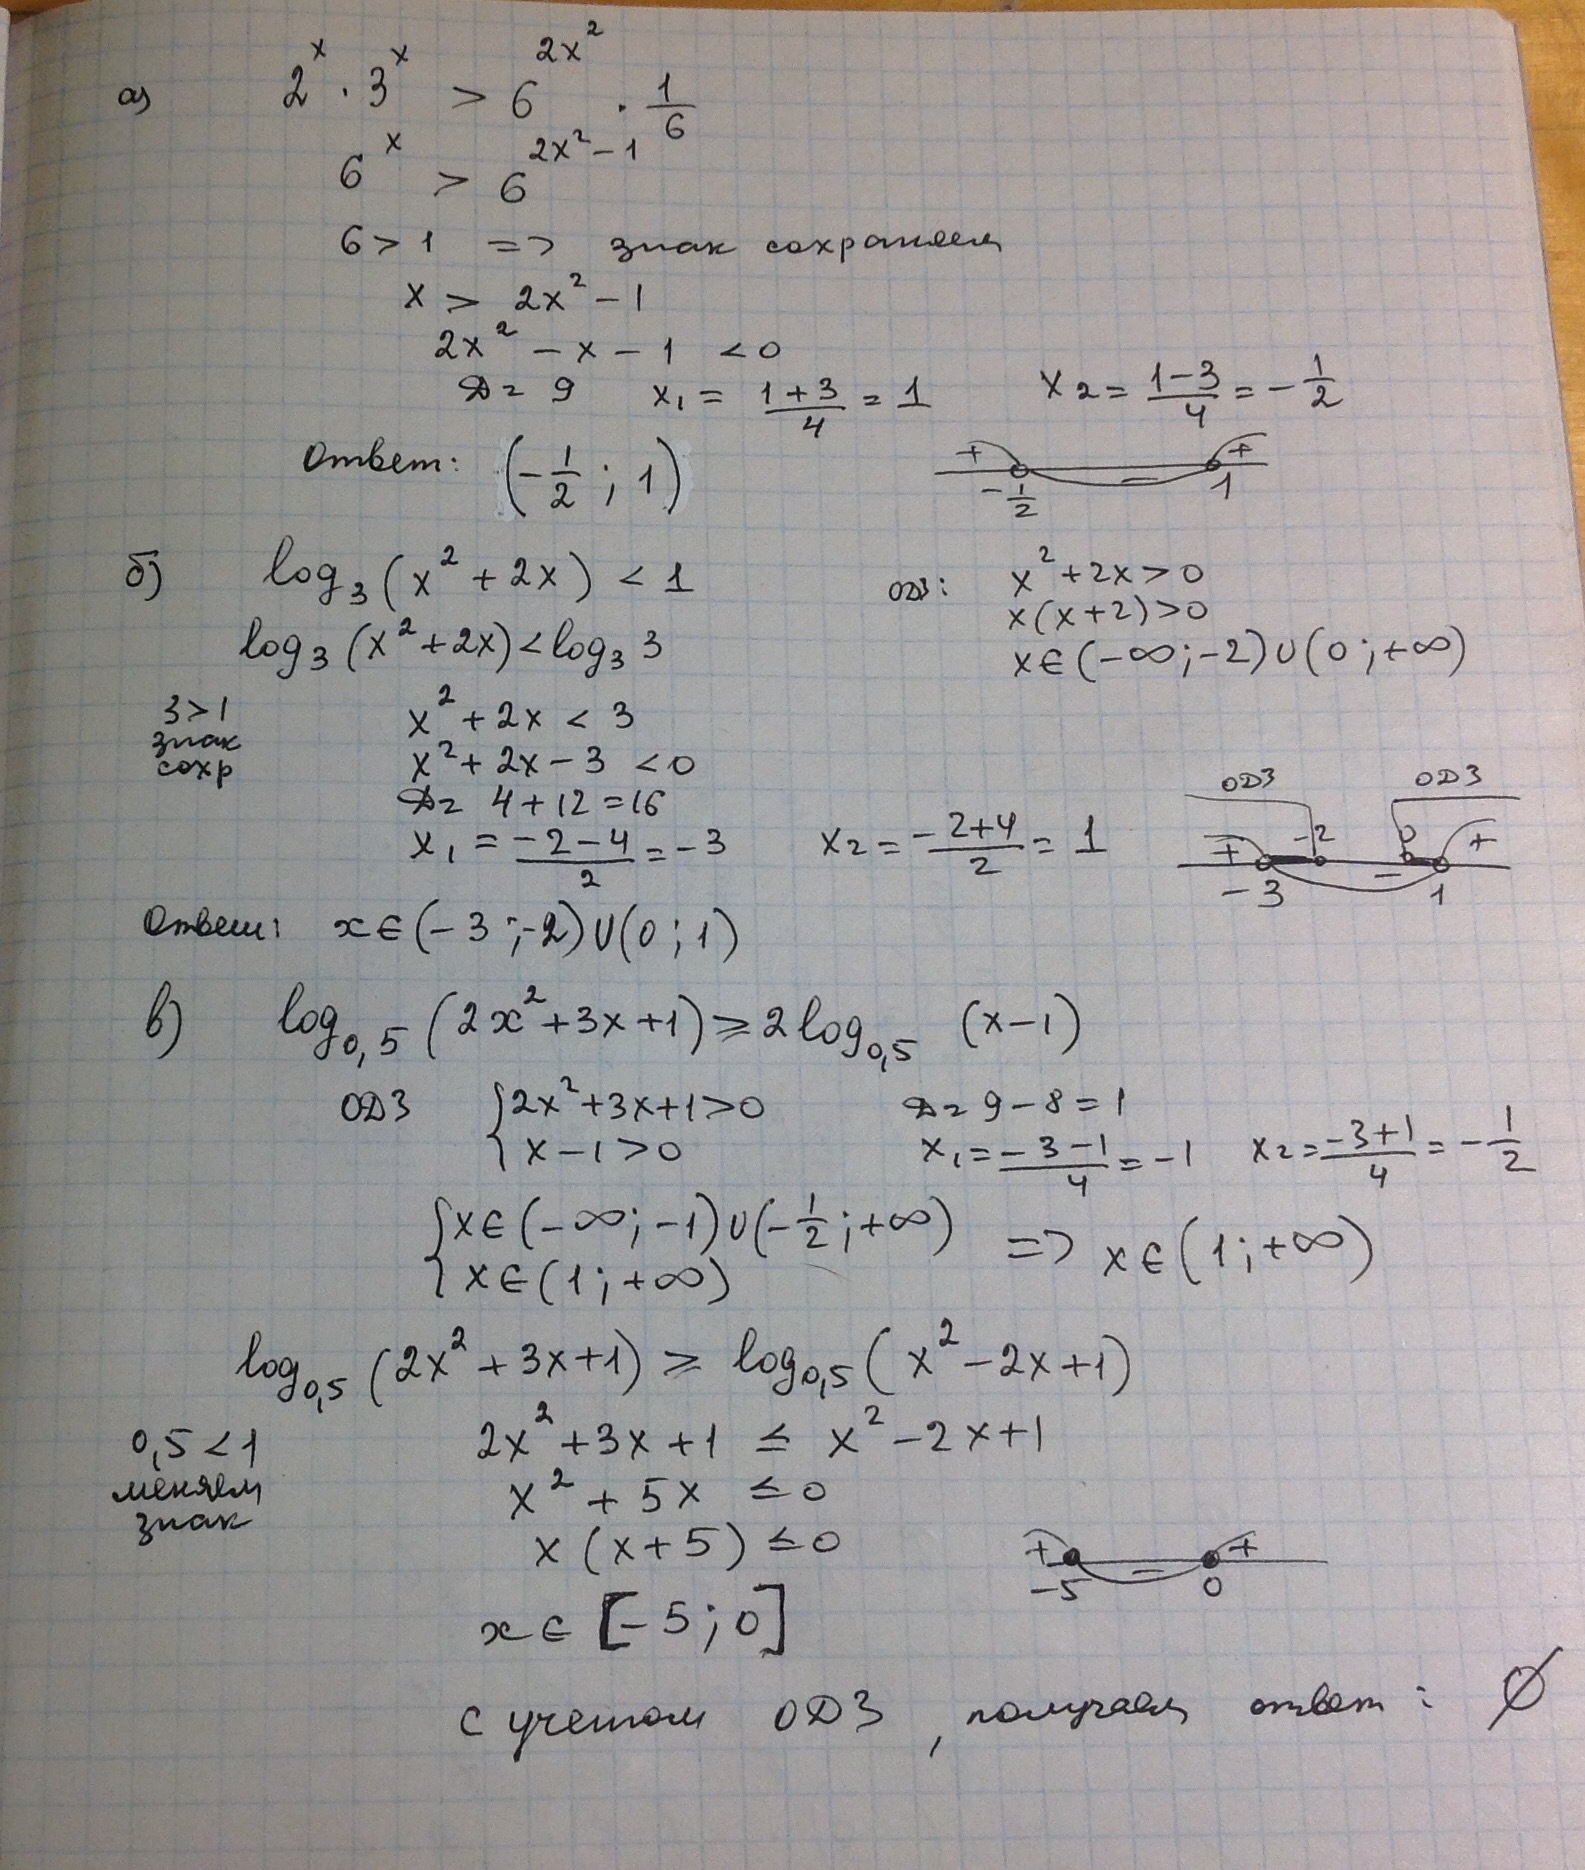 а) 2^x · 3^x > 6^(2x²) · 1/6
6^x > 6^(2x²-1)
6 > 1 => знак сохраняем
x > 2x² - 1
2x² - x - 1 < 0
D = 9 x₁ = (1+3)/4 = 1 x₂ = (1-3)/4 = -1/2
Ответ: (-1/2 ; 1) + - + -1/2 1
б) log₃(x² + 2x) < 1 ОДЗ: x² + 2x > 0
x(x+2) > 0
log₃(x² + 2x) < log₃ 3 x ∈ (-∞; -2) ∪ (0; +∞)
3 > 1 знак сохр
x² + 2x < 3
x² + 2x - 3 < 0
D = 4 + 12 = 16
x₁ = (-2-4)/2 = -3 x₂ = (-2+4)/2 = 1
ОДЗ ОДЗ
+ -2 0 +
-3 - 1
Ответ: x ∈ (-3; -2) ∪ (0; 1)
в) log₀,₅(2x² + 3x + 1) ≥ 2 log₀,₅ (x-1)
ОДЗ { 2x² + 3x + 1 > 0 D = 9 - 8 = 1
x - 1 > 0 x₁ = (-3-1)/4 = -1 x₂ = (-3+1)/4 = -1/2
{ x ∈ (-∞; -1) ∪ (-1/2; +∞)
x ∈ (1; +∞) => x ∈ (1; +∞)
log₀,₅(2x² + 3x + 1) ≥ log₀,₅(x² - 2x + 1)
0,5 < 1 меняем знак
2x² + 3x + 1 ≤ x² - 2x + 1
x² + 5x ≤ 0
x(x+5) ≤ 0
+ - +
-5 0
x ∈ [-5; 0]
с учетом ОДЗ, получаем ответ: ∅